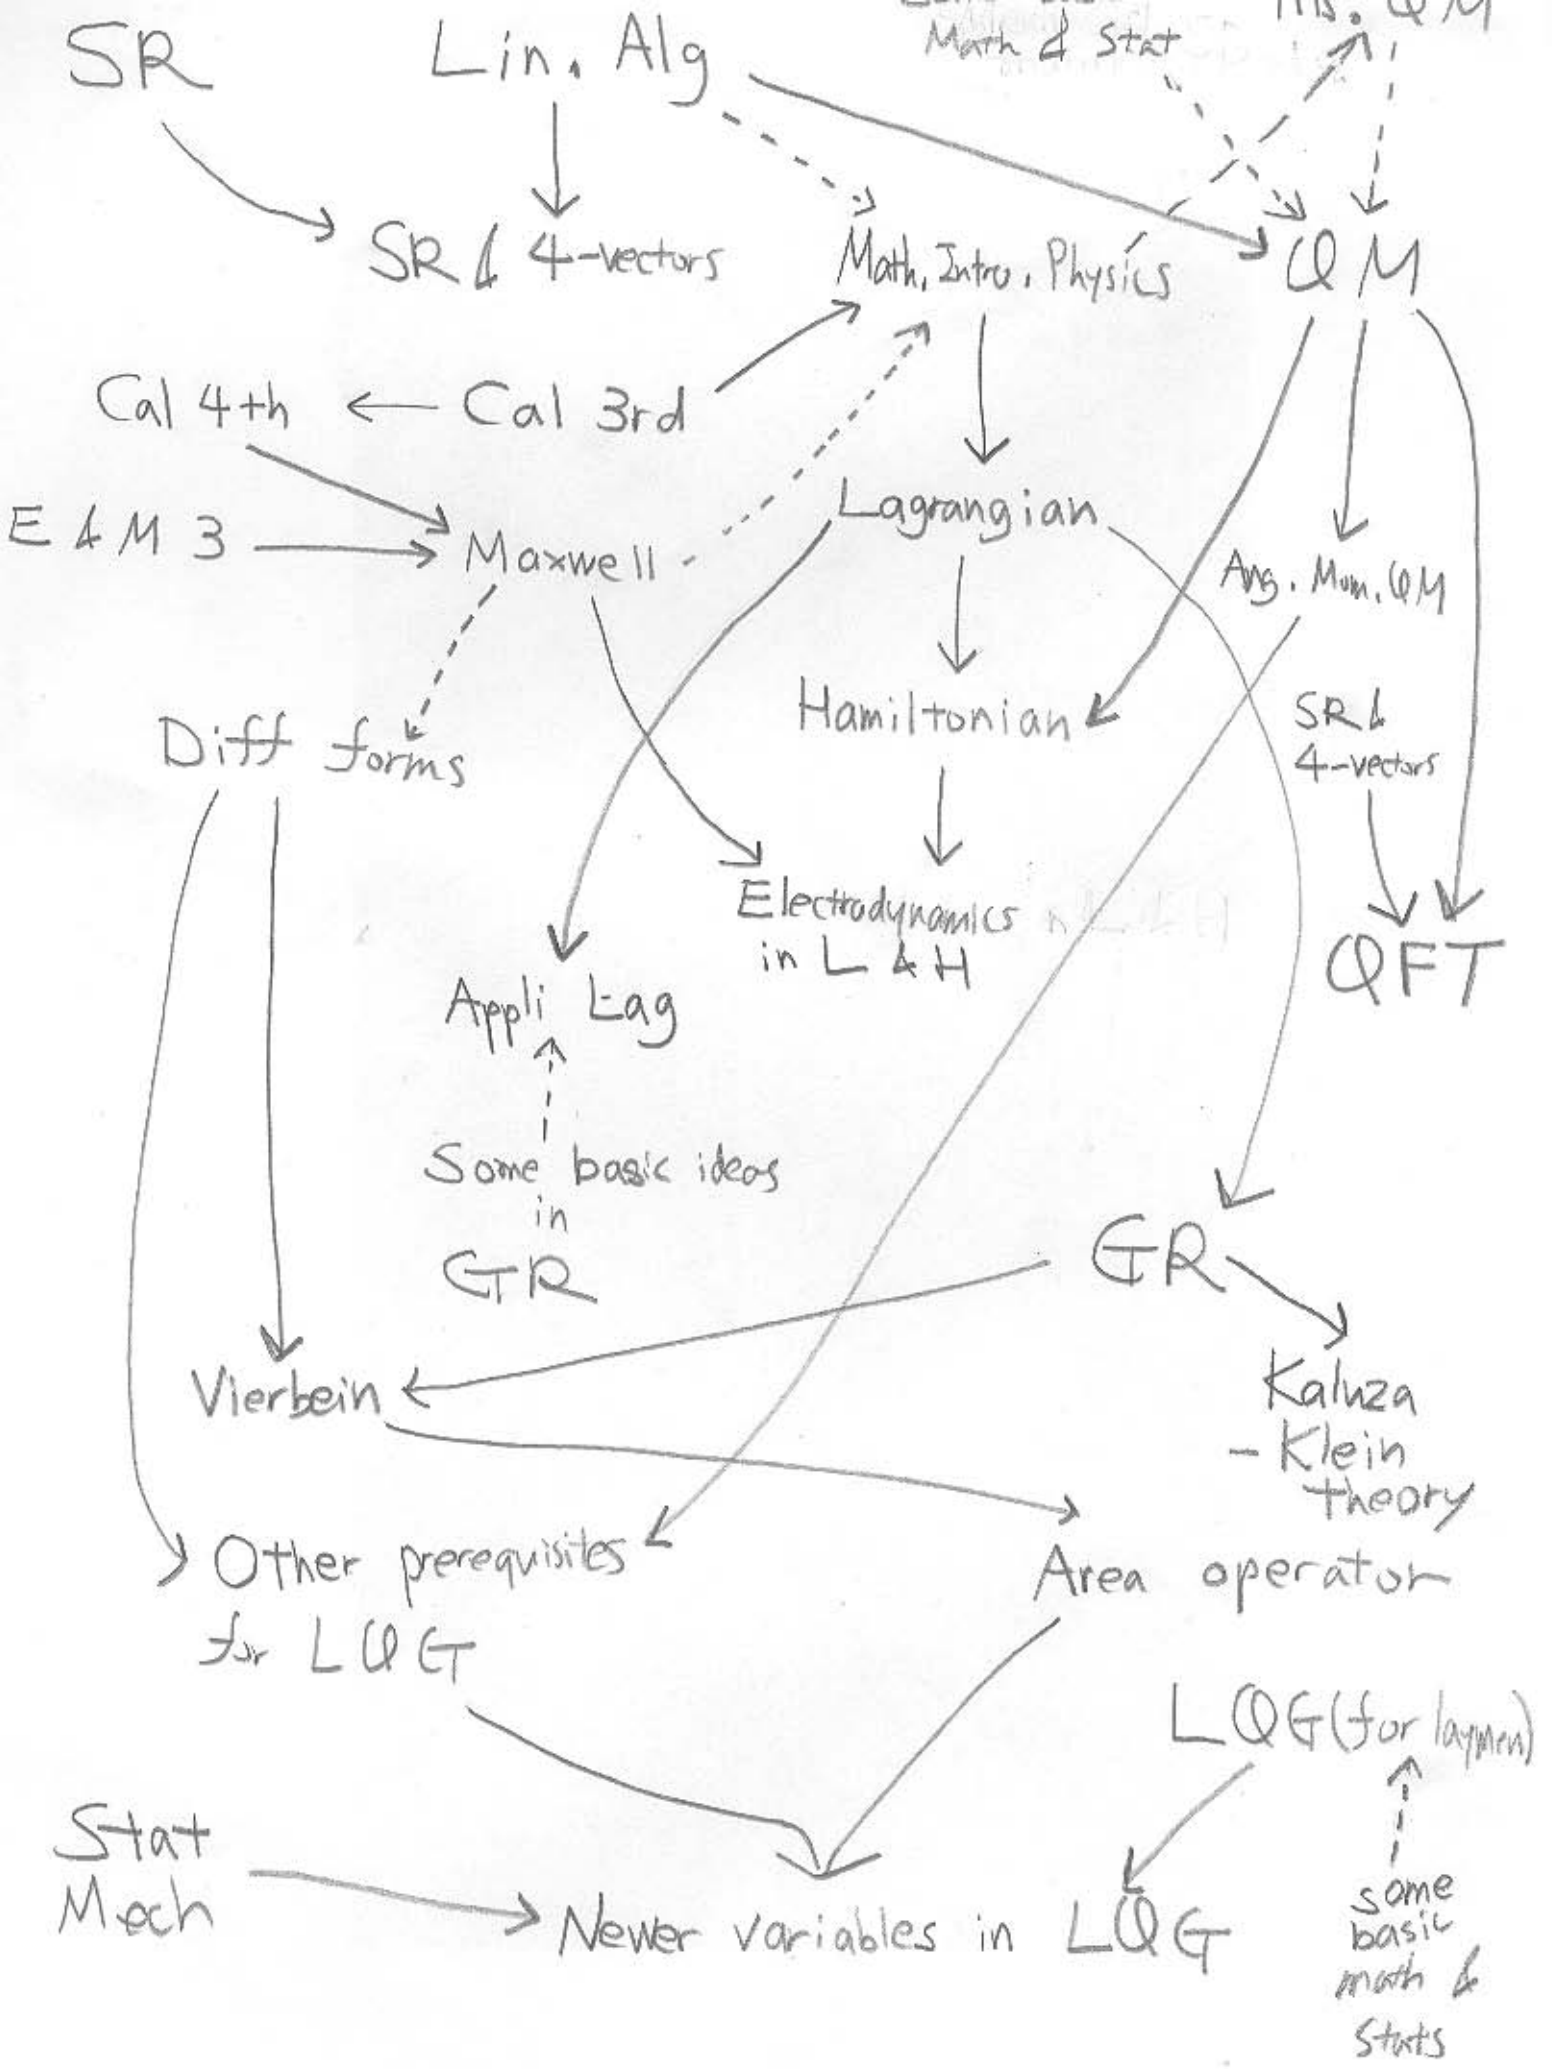 QM
Math & Stat
SR
Lin. Alg
SR & 4-vectors
Math. Intro. Physics
QM
Cal 4th
Cal 3rd
Lagrangian
E & M 3
Maxwell
Ang. Mom. QM
Hamiltonian
SR &
4-vectors
Diff forms
Electrodynamics
in L & H
QFT
Appli Lag
Some basic ideas
in
GR
GR
Vierbein
Kaluza
- Klein
theory
Other prerequisites
for LQG
Area operator
LQG (for laymen)
Stat
Mech
Newer variables in LQG
some
basic
math &
stats